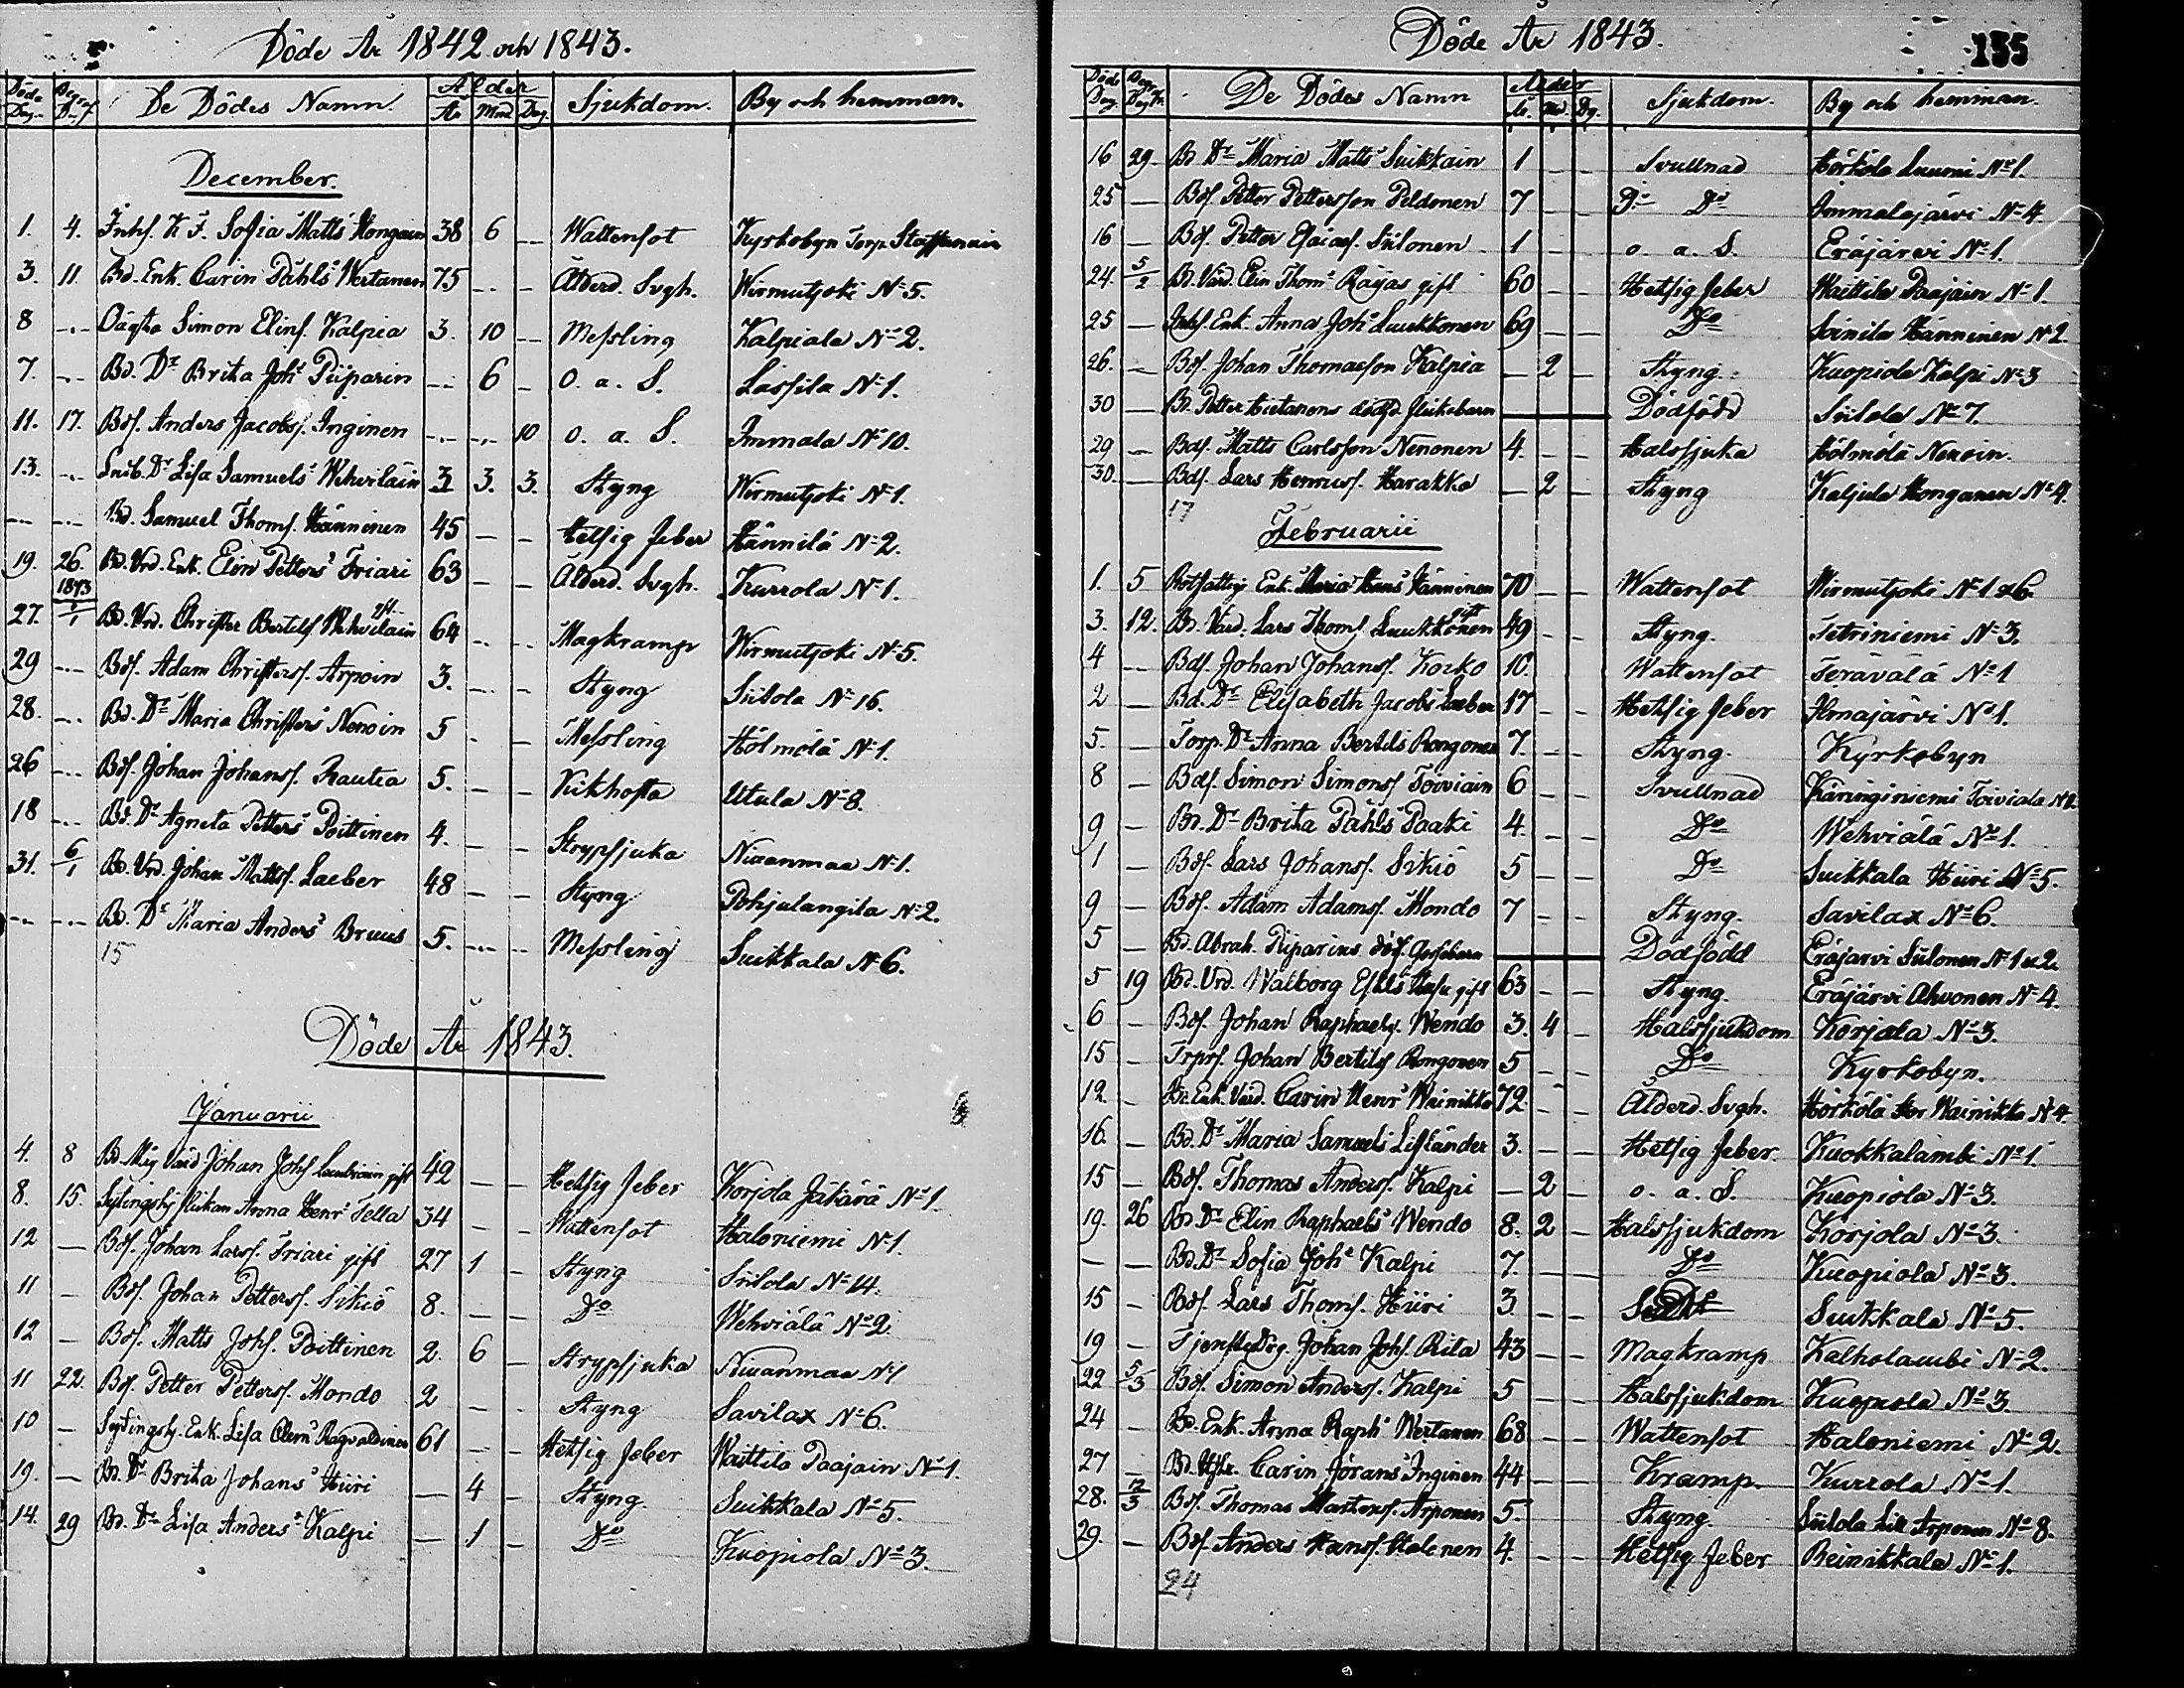 Döde År 1842 och 1843.
Döde Dag. Begr. Dag. De Dödes Namn. Ålder År Mnd Dag. Sjukdom. By och hemman.
December.
1. 4. Inhs. K. J. Sofia Matts Hongain 38 6 - Wattensot Kyrkobyn Torp Staffanain
3. 11 Bd. Enk. Carin Påhls Wertanen 75 - - Ålderd. Svgh. Wirmutjoki No 5.
8 - Simon Elins. Kalpia 3. 10 - Messling Kalpiala No 2.
7. - Bd. Dr Brita Johs Piiparin - 6 - o. a. S. Lassila No 1.
11. 17. Bds. Anders Jacobs. Inginen - - 10 o. a. S. Immala No 10.
13. - Dr Lisa Samuels Wehvilain 3 3. 3. Styng Wirmutjoki No 1.
- - Bd. Samuel Thoms. Hänninen 45 - - Hetsig feber Hännilä No 2.
19. 26. Bd. Vrd. Enk. Elin Petters Friari 63 - - Ålderd. Svgh. Kurrola No 1.
1843
27. 1/1 Bd. Vrd. Christer Bertils Wehvilain gift 64 - - Magkramp Wirmutjoki No 5.
29 - Bds. Adam Christers. Arpoin 3. - - Styng Siitola No 16.
28. - Bd. Dr Maria Christers Nenoin 5 - - Messling Hölmölä No 1.
26 - Bds. Johan Johans. Rautia 5. - - Kikhosta Utula No 8.
18 - Bd. Dr Agneta Petters Poittinen 4. - - Strypsjuka Niuanmaa No 1.
31. 6/1 Bd. Vrd. Johan Matts. Laeber 48 - - Styng Pohjalangila No 2.
- - Bd. Dr Maria Anders Bruus 5. - - Messling Suikkala No 6.
15
Döde År 1843.
Januarii
4. 8 Bd. Måg Värd Johan Johs. gift 42 - - Hetsig feber Korjola Jäkärä No 1
8. 15. flickan Anna Henrs Tella 34 - - Wattensot Haloniemi No 1.
12 - Bds. Johan Lars. Friari gift 27 1 - Styng Siitola No 14.
11 - Bds. Johan Petters. Sikiö 8. - - Do Wehviälä No 2.
12 - Bds. Matts Johs. Poittinen 2. 6 - Strypsjuka Niuanmaa No 1
11 22. Bds. Petter Petters. Mondo 2 - - Styng Savilax No 6.
10 - Enk. Lisa Clem Ragvaldinen 61 - - Hetsig feber Waittila Paajain No 1.
19. - Bd. Dr Brita Johans Hiiri - 4 - Styng. Suikkala No 5.
14. 29 Bd. Dr Lisa Anders Kalpi - 1 - Do Kuopiola No 3.
Döde År 1843.
155
Döde Dag. Begr. Dag. De Dödes Namn Ålder År. Md. Dg. Sjukdom. By och hemman.
16 29. Bd Dr Maria Matts Suikkain 1 - - Svullnad Hörkölä Luumi No 1.
25 - Bds. Petter Pettersson Peldonen 7 - - Do Do Immalajärvi No 4.
16 - Bds. Petter Esaias. Siilonen 1 - - o. a. S. Eräjärvi No 1.
24. 5/2 Bd. Värd. Elin Thoms Räijas gift 60 - - Hetsig feber Waittila Paajain No 1.
25 - Inhs. Enk. Anna Johs Luukkonen 69 - - Do Soinila Hanninen No 2.
26. - Bds. Johan Thomasson Kalpia - 2 - Styng. Kuopiola Kalpi No 3
30 - Bd. Petter Hietanens dödfd flickebarn Dödfödd Siitola No 7.
29 - Bds. Matts Carlsson Nenonen 4. - - Halssjuka Hölmölä Nenoin.
30. - Bds. Lars Henrics. Harakka - 2 - Styng Kaljula Honganen No 4.
17
Februarii
1. 5 Rotfattig Enk. Maria Hans Hänninen 70 - - Wattensot Wirmutjoki No 1 & 6.
3. 12. Bd. Värd. Lars Thoms. Luukkonen gift 49 - - Styng. Tetriniemi No 3.
4 - Bds. Johan Johans. Korko 10. Wattensot Terävälä No 1
2 - Bd. Dr Elisabeth Jacobs Laeber 17 - - Hetsig feber Ilmajärvi No 1.
5. - Torp. Dr Anna Bertils Rongonen 7. - - Styng. Kyrkobyn
8 - Bds. Simon Simons. Toiviain 6 - - Svullnad Käringiniemi Toiviala No
9 - Bd. Dr Brita Påhls Paaki 4. - - Do Wehviälä No 1.
1 - Bds. Lars Johans. Sikiö 5 - - Do Suikkala Hiiri No 5.
9 - Bds. Adam Adams. Mondo 7 - - Styng. Savilax No 6.
5 - Bd. Abrah. Piiparins döf. Gossebarn Dödfödd Eräjärvi Siilonen No 1 & 2.
5 19 Bd. Vrd. Walborg gift 63 - - Styng. Eräjärvi Ahvonen No 4.
6 - Bds. Johan Raphaels. Wendo 3. 4 - Halssjukdom Korjola No 3.
15 - Trprs. Johan Bertils Rongonen 5 - - Do Kyrkobyn.
12. - Bd. Enk. Värd. Carin Henrs Wainikka 72 - - Ålderd. Svgh. Hörkölä Wainikka No 4.
16. - Bd. Dr Maria Samuels Lifländer 3. - - Hetsig feber. Kuokkalambi No 1.
15 - Bds. Thomas Anders. Kalpi - 2 - o. a. S. Kuopiola No 3.
19. 26 Bd. Dr Elin Raphaels Wendo 8. 2 - Halssjukdom Korjola No 3.
- - Bd. Dr Sofia Johs Kalpi 7. - - Do Kuopiola No 3.
15 - Bds. Lars Thoms. Hiiri 3. - - Suikkala No 5.
19 - Tjenstedrg. Johan Johs. Rita 43 - - Magkramp Kalholambi No 2.
22 5/3 Bds. Simon Anders. Kalpi 5 - - Halssjukdom Kuopiola No 3.
24 - Bd. Enk. Anna Raphs Wertanen 68 - - Wattensot Haloniemi No 2.
27 - Bd. Carin Jörans Inginen 44 - - Kramp. Kurrola No 1.
28. 12/3 Bds. Thomas Mårtens. Arponen 5. - - Styng. Siitola Lill Arponen No 8.
29. - Bds. Anders Hans. Halonen 4. - - Hetsig feber Reinikkala No 1.
24